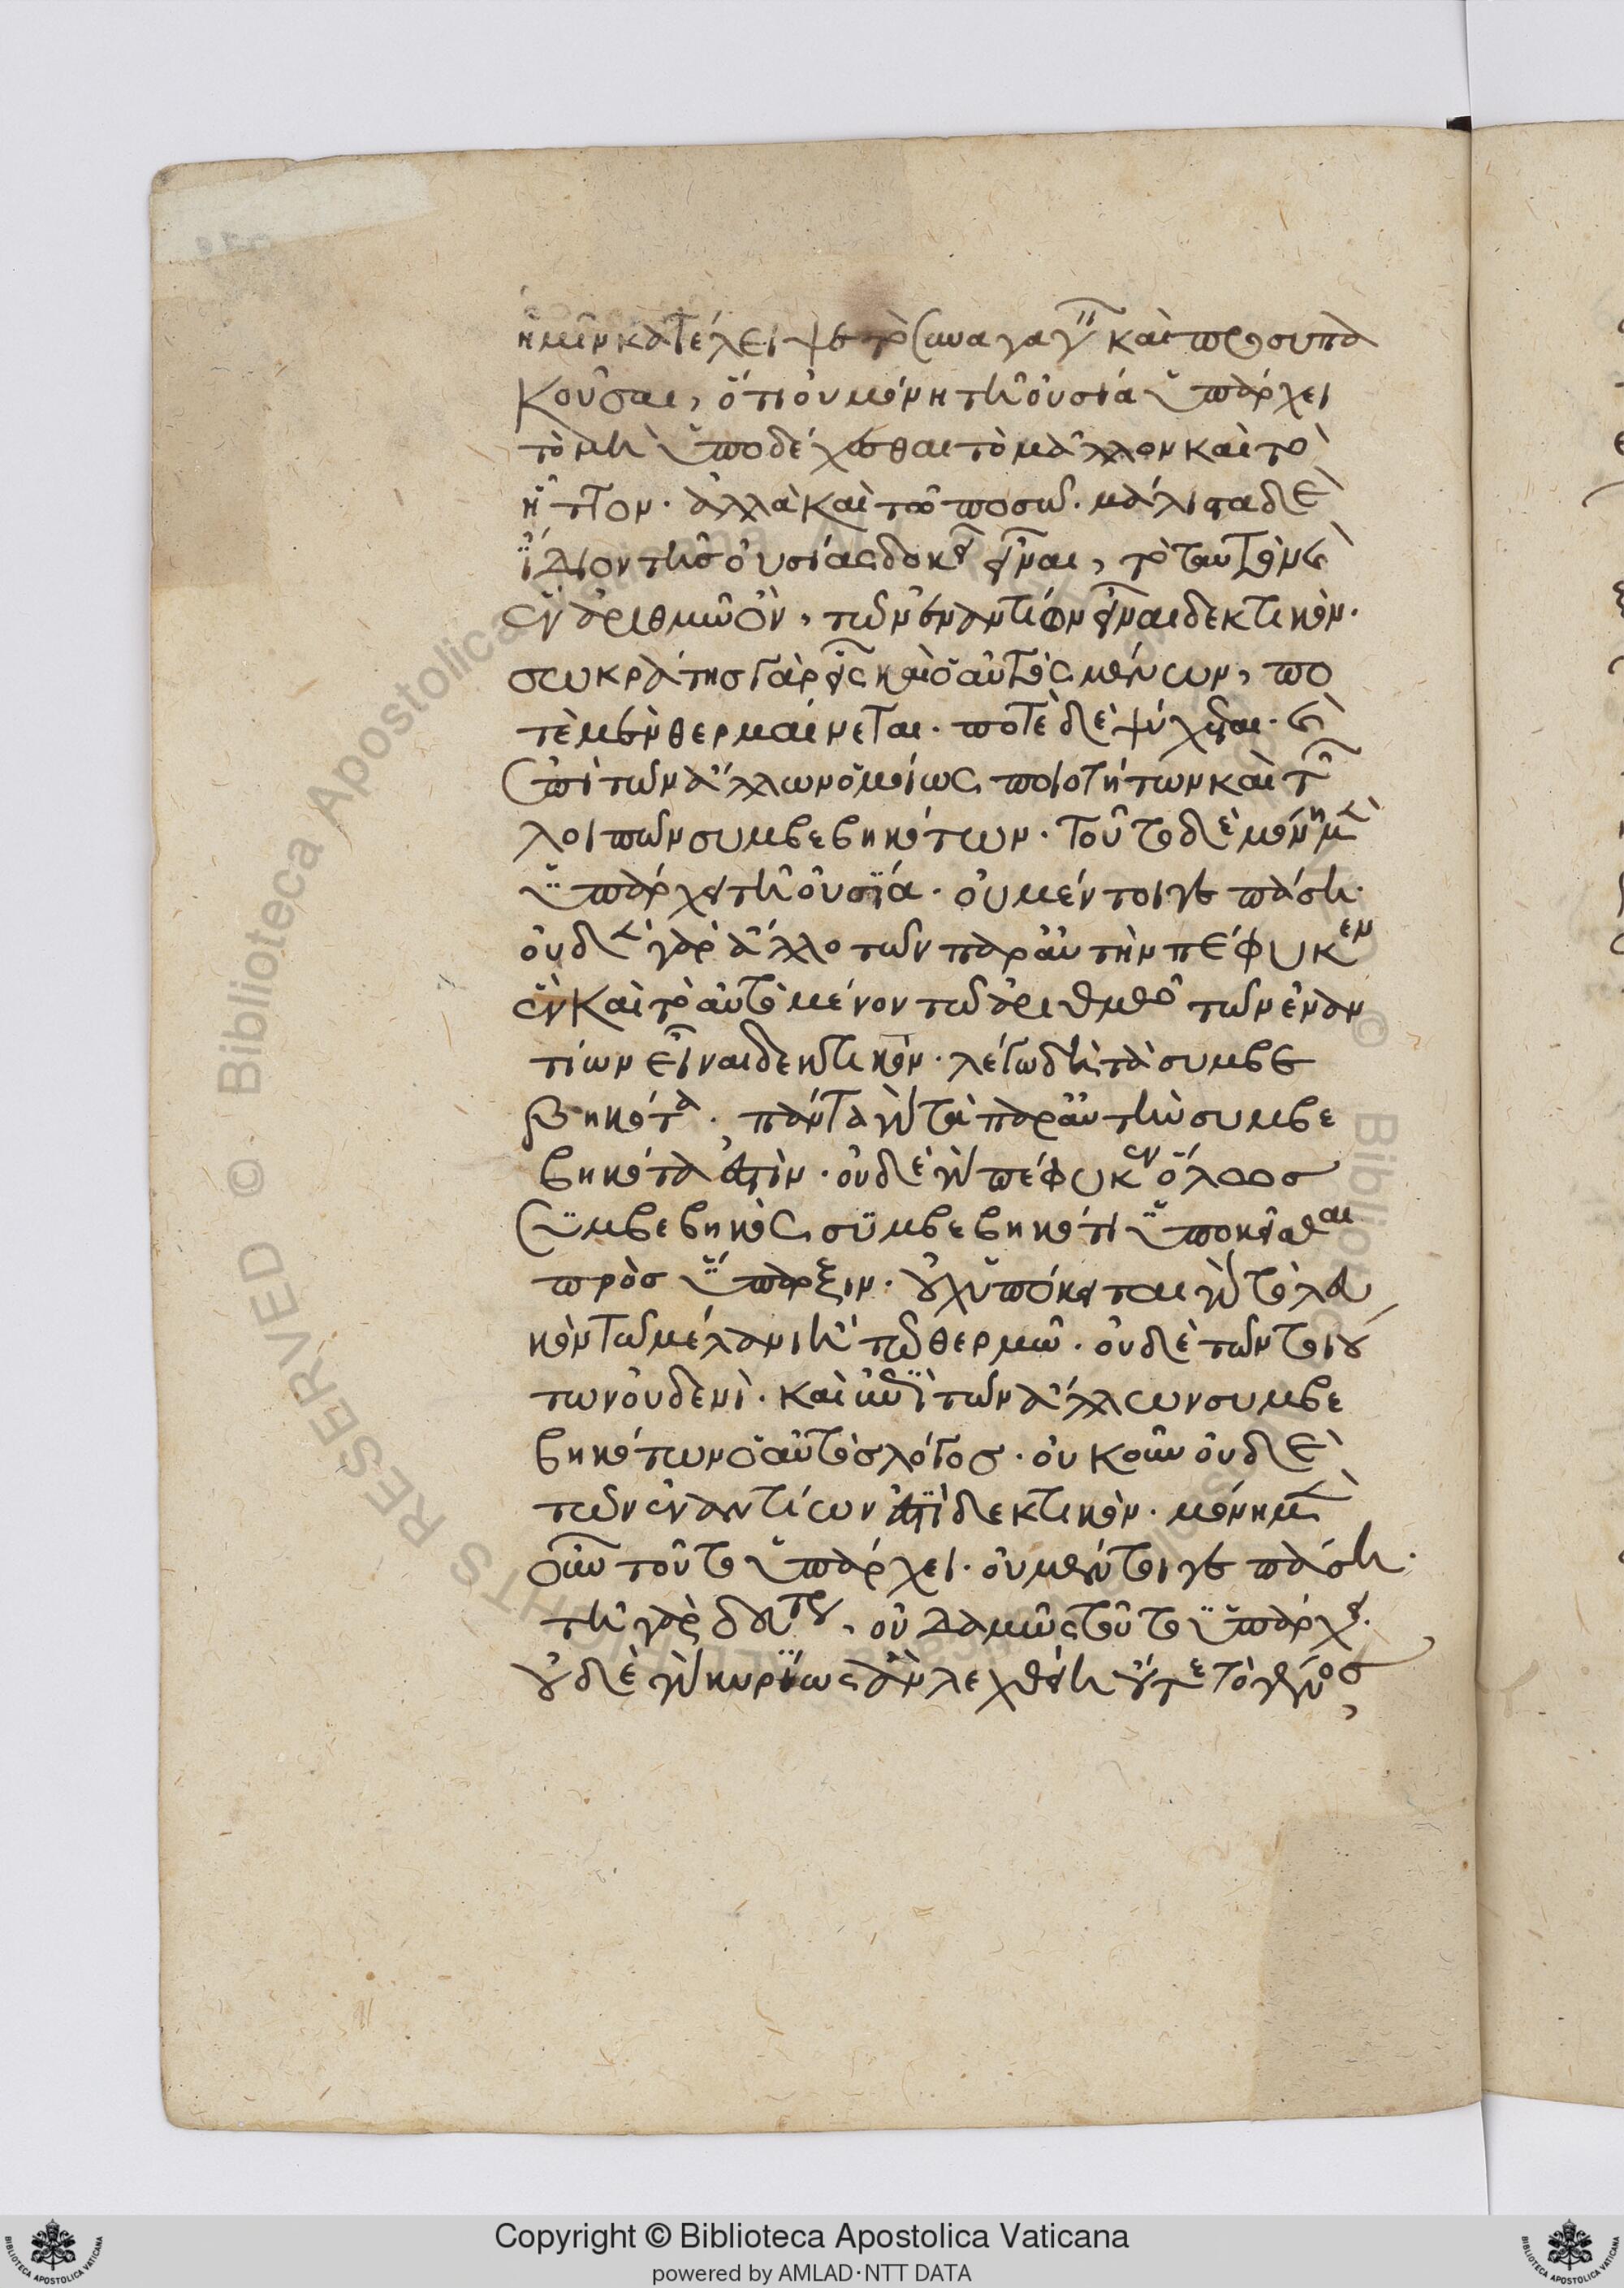 ἡμῖν κατέλειψε τὸ συναγαγεῖν καὶ προσυπα
κοῦσαι, ὅτι οὐ μόνη τῆ οὐσία ὑπάρχει
τὸ μὴ ὑποδέχεσθαι τὸ μᾶλλον καὶ τὸ
ἧττον. ἀλλὰ καὶ τῶ ποσῶ. μάλιστα δὲ
ἴδιον τῆς οὐσίας δοκεῖ εἶναι, τὸ ταυτὸν καὶ
ἓν ἀριθμῶ ὂν, τῶν ἐναντίων εἶναι δεκτικόν.
σωκράτης γὰρ εἷς καὶ ὁ αὐτὸς μένων, πο
τὲ μὲν θερμαίνεται. ποτὲ δὲ ψύχεται. καὶ
ἐπὶ τῶν ἄλλων ὁμοίως ποιοτήτων καὶ τῶν
λοιπῶν συμβεβηκότων. τοῦτο δὲ μόνη μὲν
ὑπάρχει τῆ οὐσία. οὐ μέντοιγε πάση.
οὐδὲν γὰρ ἄλλο τῶν παρ αὐτὴν πέφυκεν
ἓν καὶ τὸ αὐτὸ μένον τῶ ἀριθμῶ τῶν ἐναν
τίων εἶναι δεκτικόν. λέγω δὴ τὰ συμβε
βηκότα. πάντα γὰρ τὰ παρ αὐτὴν συμβε
βηκότα ἐστὶν. οὐδὲ γὰρ πέφυκεν ὅλως
συμβεβηκὸς συμβεβηκότι ὑποκεῖσθαι
πρὸς ὕπαρξιν. οὐχ ὑπόκειται γὰρ τὸ λευ
κὸν τῶ μέλανι ἢ τῶ θερμῶ. οὐδὲ τῶν τοιού
των οὐδενὶ. καὶ ἐπὶ τῶν ἄλλων συμβε
βηκότων ὁ αὐτὸς λόγος. οὐκοῦν οὐδὲ
τῶν ἐναντίων ἐπιδεκτικόν. μόνη μὲν
οὖν τοῦτο ὑπάρχει. οὐ μέντοιγε πάση.
τῆ γὰρ δευτέρα, οὐδαμῶς τοῦτο ὑπάρχει.
οὐδὲ γὰρ κυρίως ἂν λεχθείη οὔτε τὸ γένος